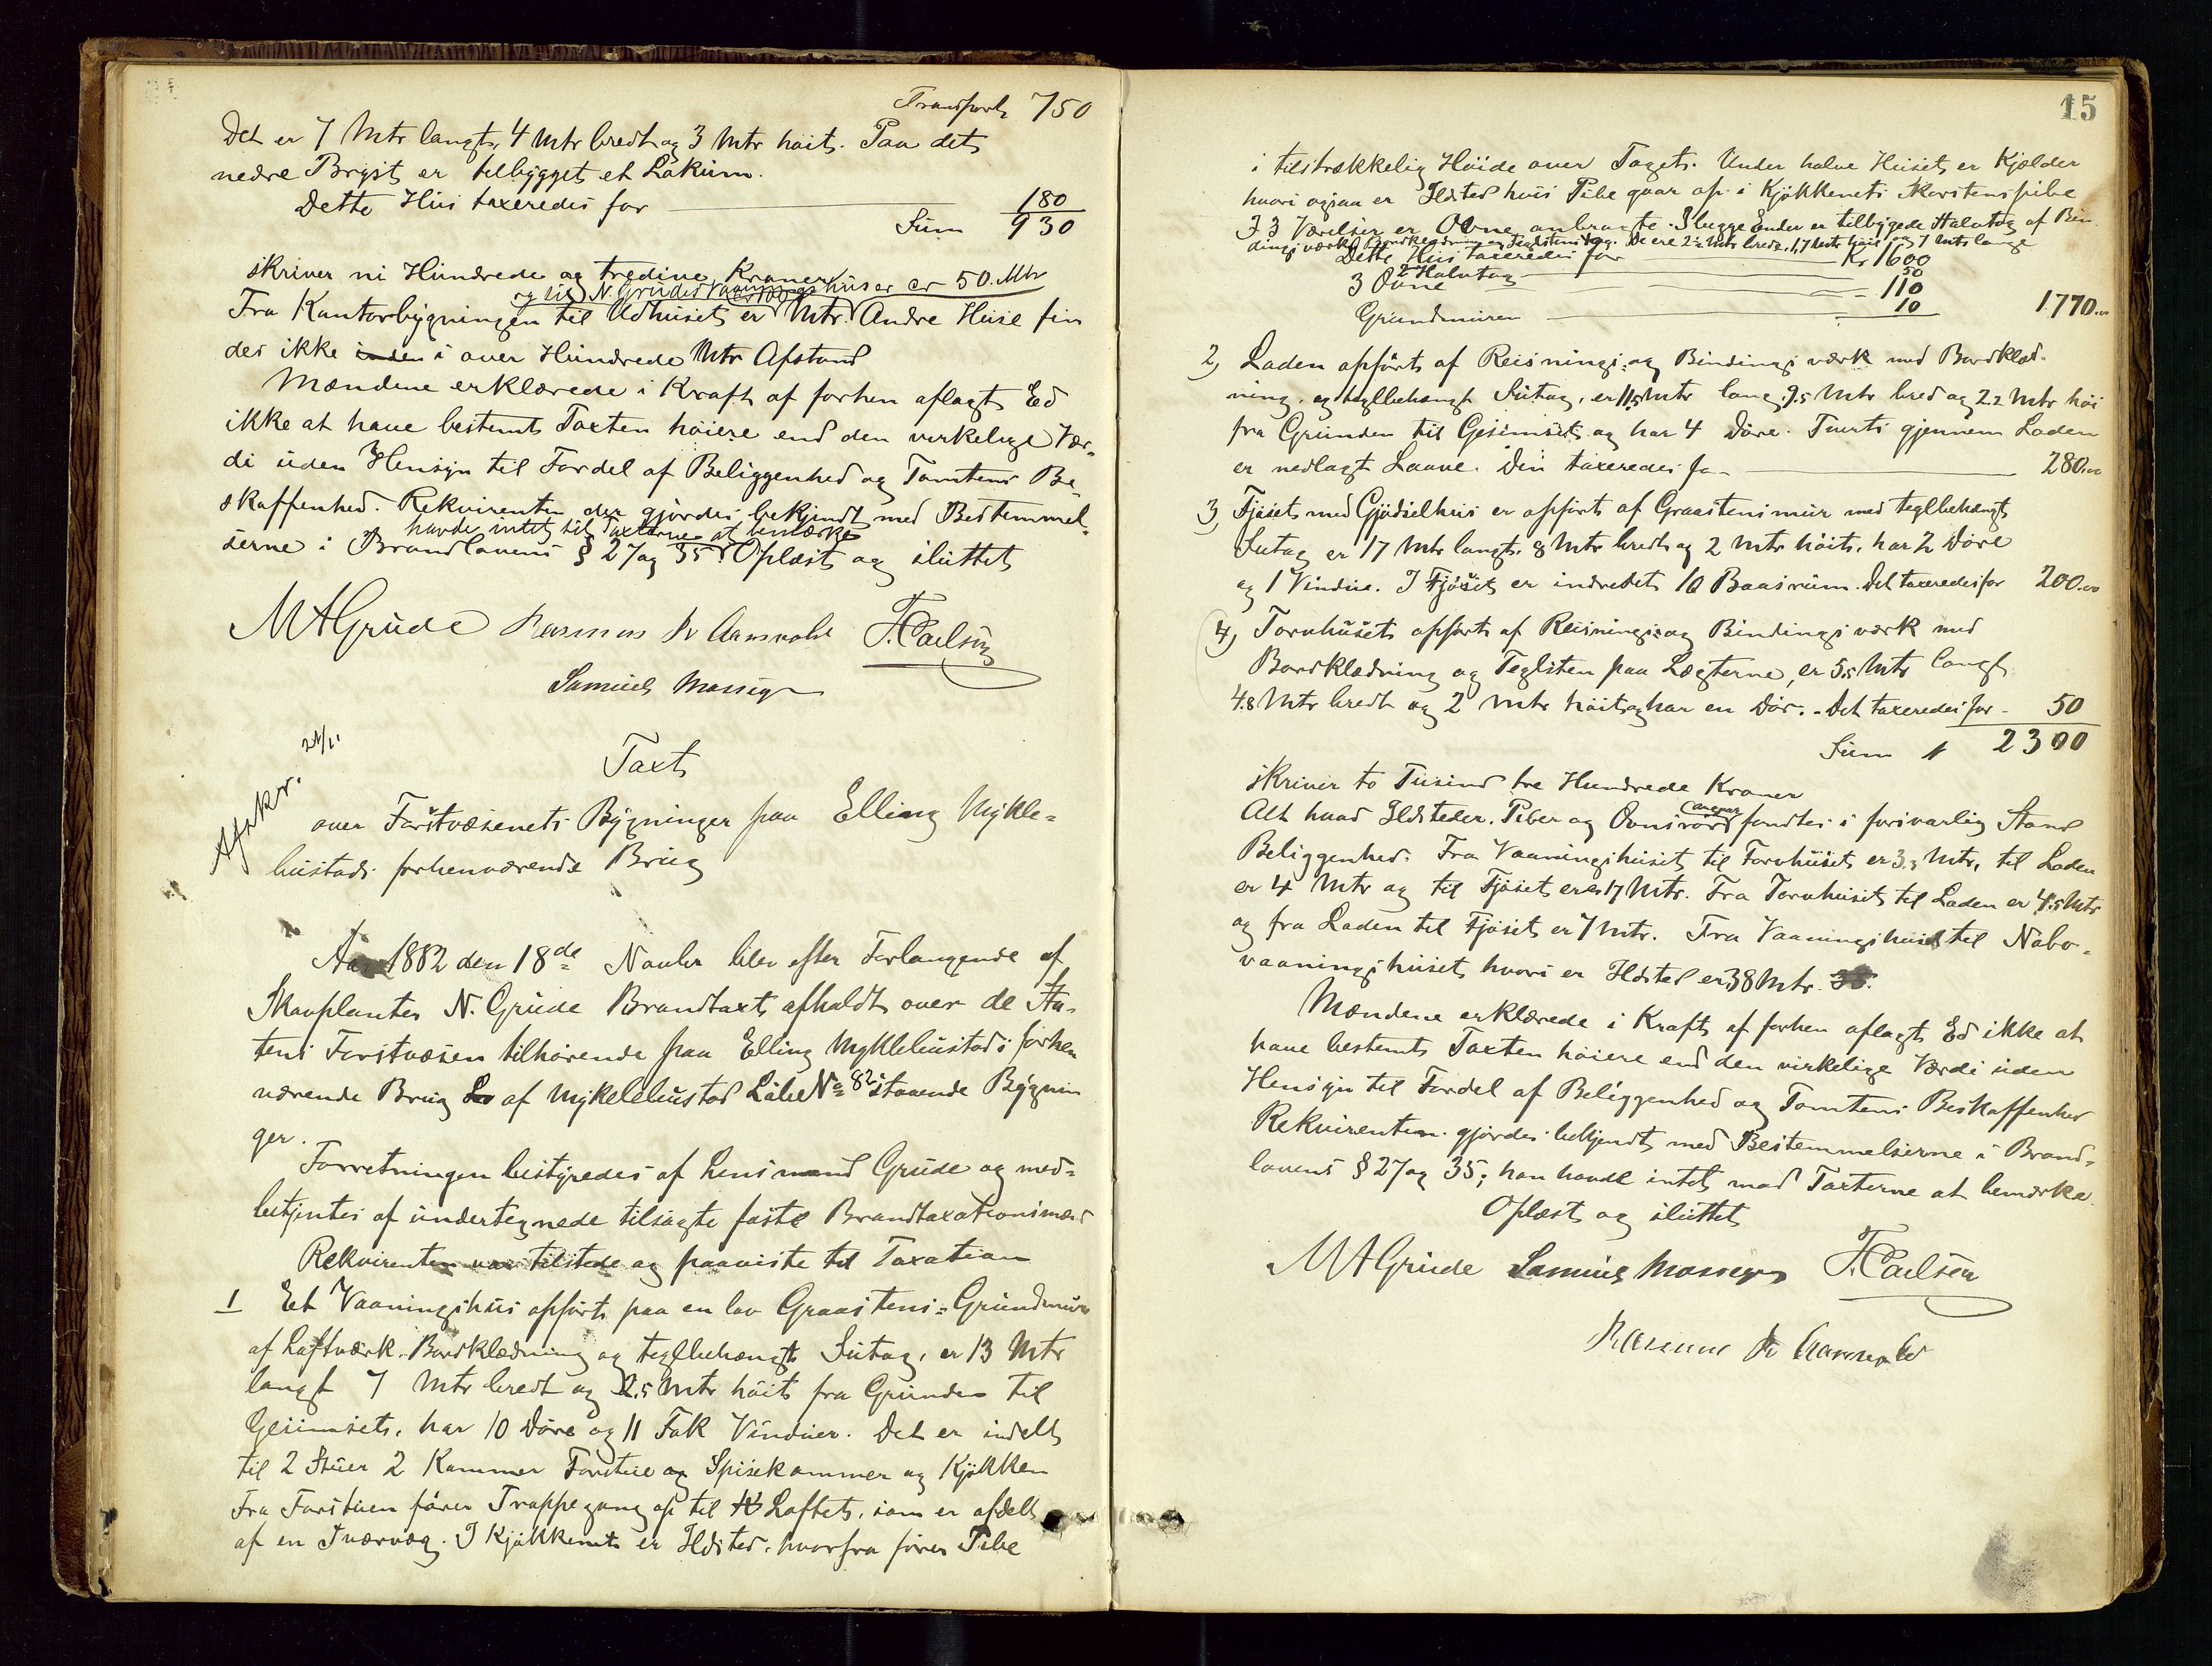 Transport 750
Det er 7 Mtr langt, 4 Mtr bredt og 3 Mtr høit. Paa det
nedre Bryst er tilbygget et Lokum.
Dette Hus taxeredes for 180
Sum 930
skriver ni Hundrede og tredive Kroner
og til N. Grudes Vaaningshus er ca 50. Mtr
Fra Kontorbygningen til Udhuset er Mtr. Andre Huse fin
des ikke inden i over Hundrede Mtr Afstand
Mændene erklærede i Kraft af forhen aflagt Ed
ikke at have bestemt Taxten høiere end den virkelige Vær-
di uden Hensyn til Fordel af Beliggenhed og Tomtens Be-
skaffenhed. Rekvirenten der gjordes bekjendt med Bestemmel-
havde intet til Taxterne at bemærke
serne i Brandlovens § 27 og 35 Oplæst og sluttet
M A Grude Rasmus Aarsvold T. Carlsen
Samuel Mossige
21/11
Taxt
over Forstvæsenets Bygninger paa Elling Mykle-
bustads forhenværende Brug
Aar 1882 den 18de Novbr blev efter Forlangende af
Skovplanter N. Grude Brandtaxt afholdt over de Sta-
tens Forstvæsen tilhørende paa Elling Myklebustads forhen
værende Brug af Myklebustad Løbe No 82 staaende Bygnin
ger.
Forretningen bestyredes af Lensmand Grude og med-
betjentes af undertegnede tilsagte faste Brandtaxationsmænd
Rekvirenten var tilstede og paaviste til Taxation
1 Et Vaaningshus opført paa en lav Graastens-Grundmur
af Loftværk. Bordklædning og teglbehængt Sutag, er 13 Mtr
langt 7 Mtr bredt og 2.5 Mtr høit fra Grunden til
Gesimset, har 10 Døre og 11 Fak Vinduer. Det er indelt
til 2 Stuer 2 Kammer Forstue og Spisekammer og Kjøkken
Fra Forstuen fører Trappegang op til Loftet, som er afdelt
af en Tværvæg. I Kjøkkenet er Ildsted, hvorfra fører Pibe
15
i tilstrækkelig Høide over Taget. Under halve Huset er Kjælder
hvori ogsaa er Ildsted hvis Pibe gaar op i Kjøkkenets Skorstenspibe
I 3 Værelser er Ovne anbragte. I begge Ender er tilbyggede Halvtag af Bin
dingsværk Bordklædning og Teglstenstag. De ere 2½ Mtr brede, 1,7 Mtr høie og 7 Mtr lange
Dette Hus taxeredes for Kr 1600
2 Halvtag 50
3 Ovne 110
Grundmuren 10 1770.00
2, Laden opført af Reisnings- og Bindingsværk med Bordklæd-
ning, og teglbehængt Sutag, er 11.5 Mtr lang, 9.5 Mtr bred og 2.2 Mtr høi
fra Grunden til Gesimset, og har 4 Døre. Tvert gjennem Laden
er nedlagt Laave. Den taxeredes for 280.00
3, Fjøset med Gjødselhus er opført af Graastensmur med teglbehængt
Sutag er 17 Mtr langt, 8 Mtr bredt og 2 Mtr høit, har 2 Døre
og 1 Vindue. I Fjøset er indredet 10 Baasrum. Det taxeredes for 200.00
4, Torvhuset opført af Reisnings- og Bindingsværk med
Bordklædning og Teglsten paa Lægterne, er 5.5 Mtr langt
4.8 Mtr bredt og 2 Mtr høit og har en Dør. Det taxeredes for 50
Sum 2300
skriver to Tusind tre Hundrede Kroner
Alt hvad Ildsteder, Piber og Ovnsrør angaar fandtes i forsvarlig Stand
Beliggenhed. Fra Vaaningshuset til Torvhuset er 3.3 Mtr, til Laden
er 4 Mtr og til Fjøset er 17 Mtr. Fra Torvhuset til Laden er 4.5 Mtr
og fra Laden til Fjøset er 7 Mtr. Fra Vaaningshuset til Nabo-
vaaningshuset hvori er Ildsted er 38 Mtr.
Mændene erklærede i Kraft af forhen aflagt Ed ikke at
have bestemt Taxten høiere end den virkelige Værdi uden
Hensyn til Fordel af Beliggenhed og Tomtens Beskaffenhed
Rekvirenten gjordes bekjendt med Bestemmelserne i Brand-
lovens § 27 og 35; han havde intet mod Taxterne at bemærke.
Oplæst og sluttet
M A Grude Samuel Mossige T. Carlsen
Rasmus Aarsvold